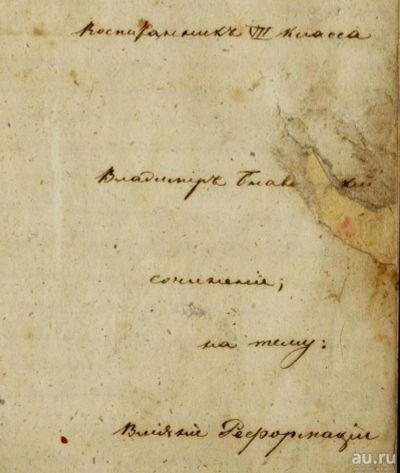 Воспитанникъ VII класса
Владимиръ
сочиненіе;
на тему:
Вліяніе Реформаціи
au.ru